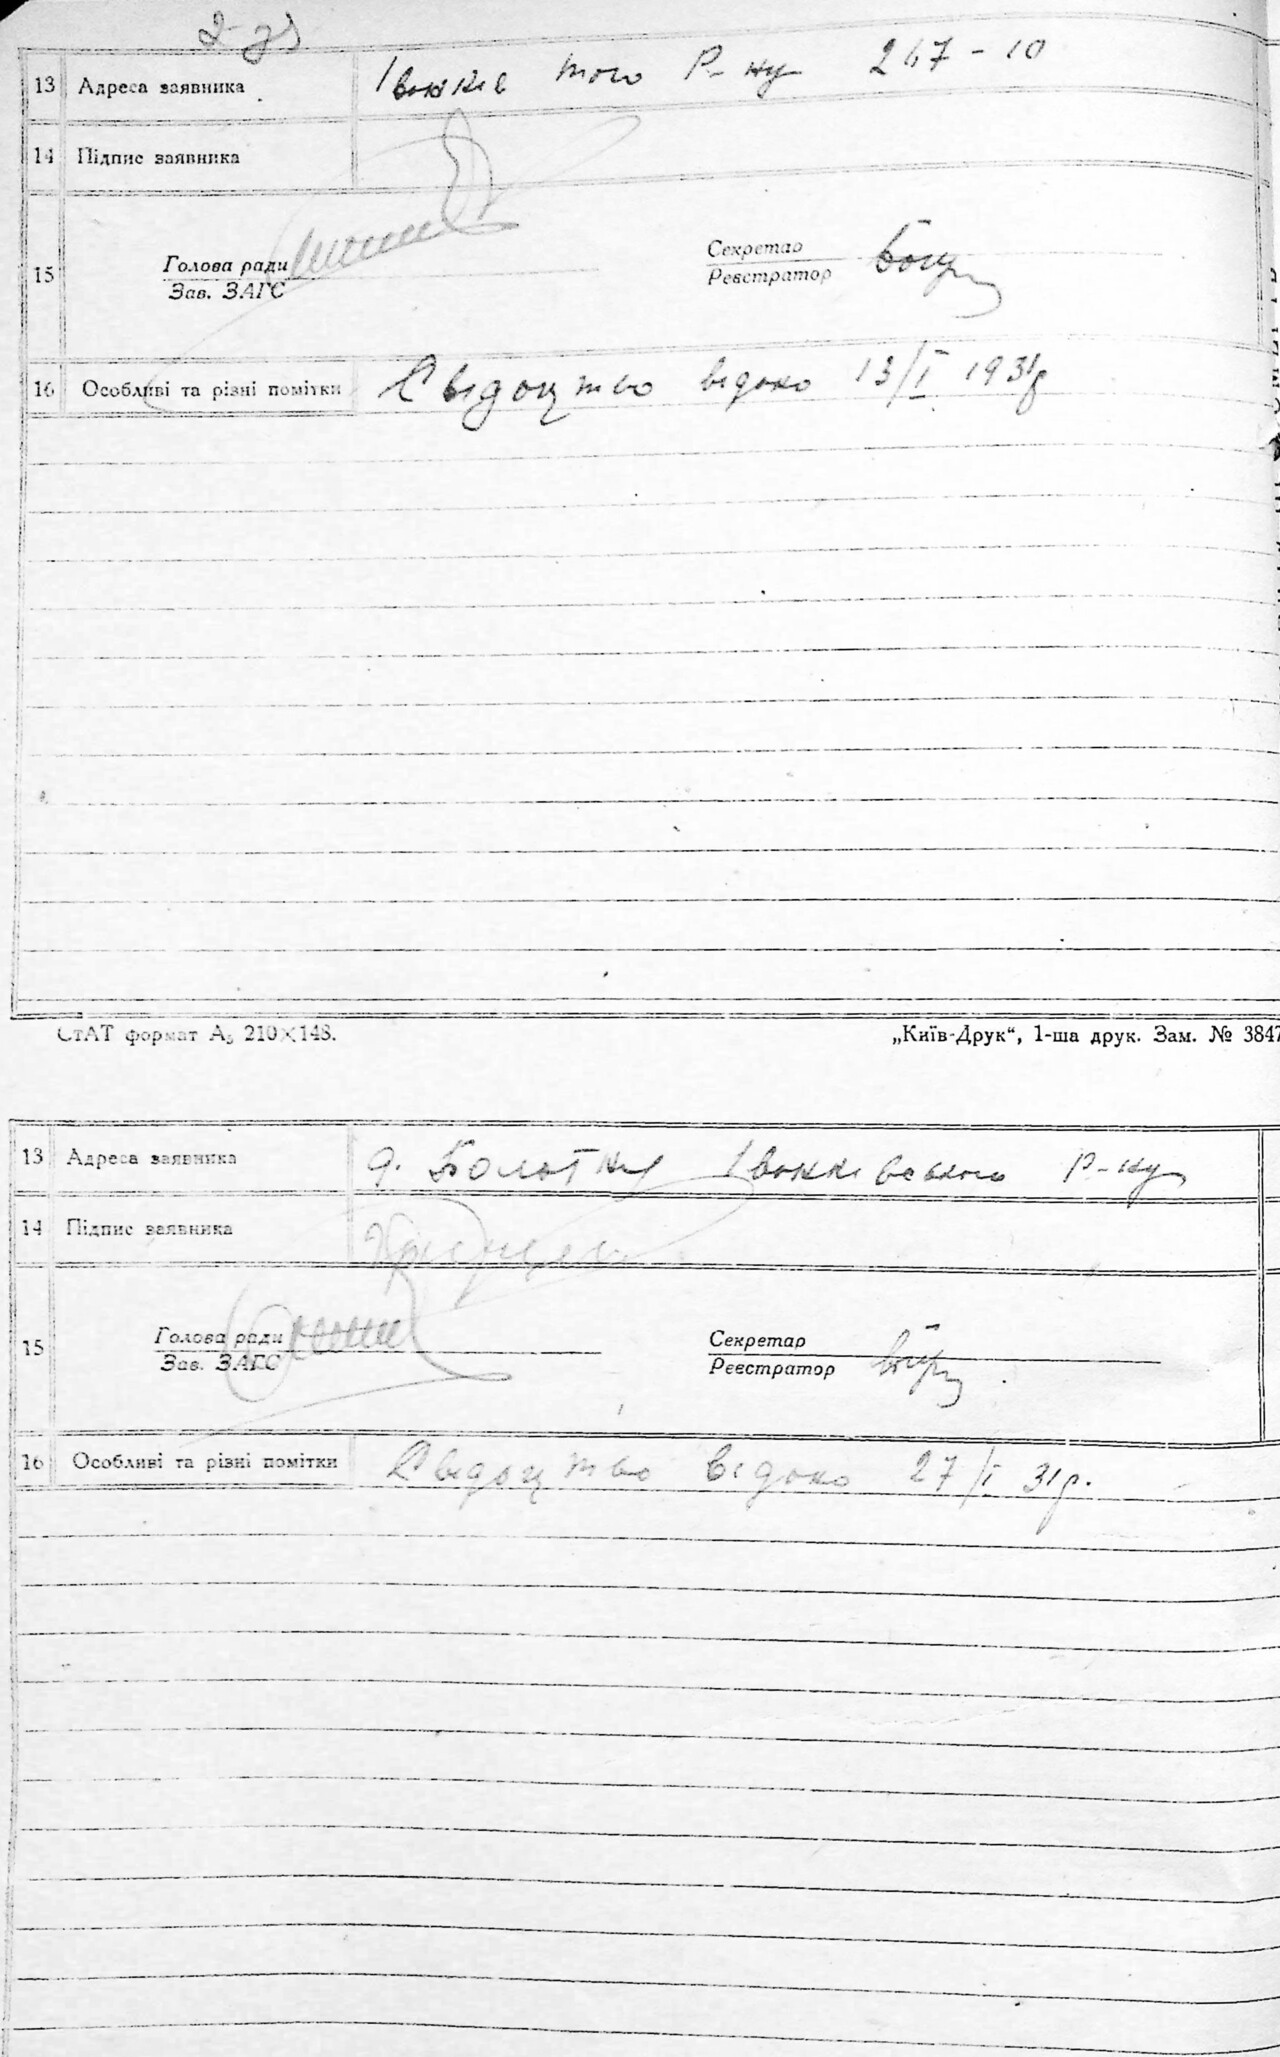 13 Адреса заявника Іванків того Р-ну 267-10
14 Підпис заявника
15 Голова ради Секретар
Зав. ЗАГС Реєстратор
16 Особливі та різні помітки Свідоцтво відано 13/I 1931р
СтАТ формат А₅ 210×148. „Київ-Друк“, 1-ша друк. Зам. № 3847
13 Адреса заявника Іванківського Р-ну
14 Підпис заявника
15 Голова ради Секретар
Зав. ЗАГС Реєстратор
16 Особливі та різні помітки Свідоцтво відано 27/I 31р.